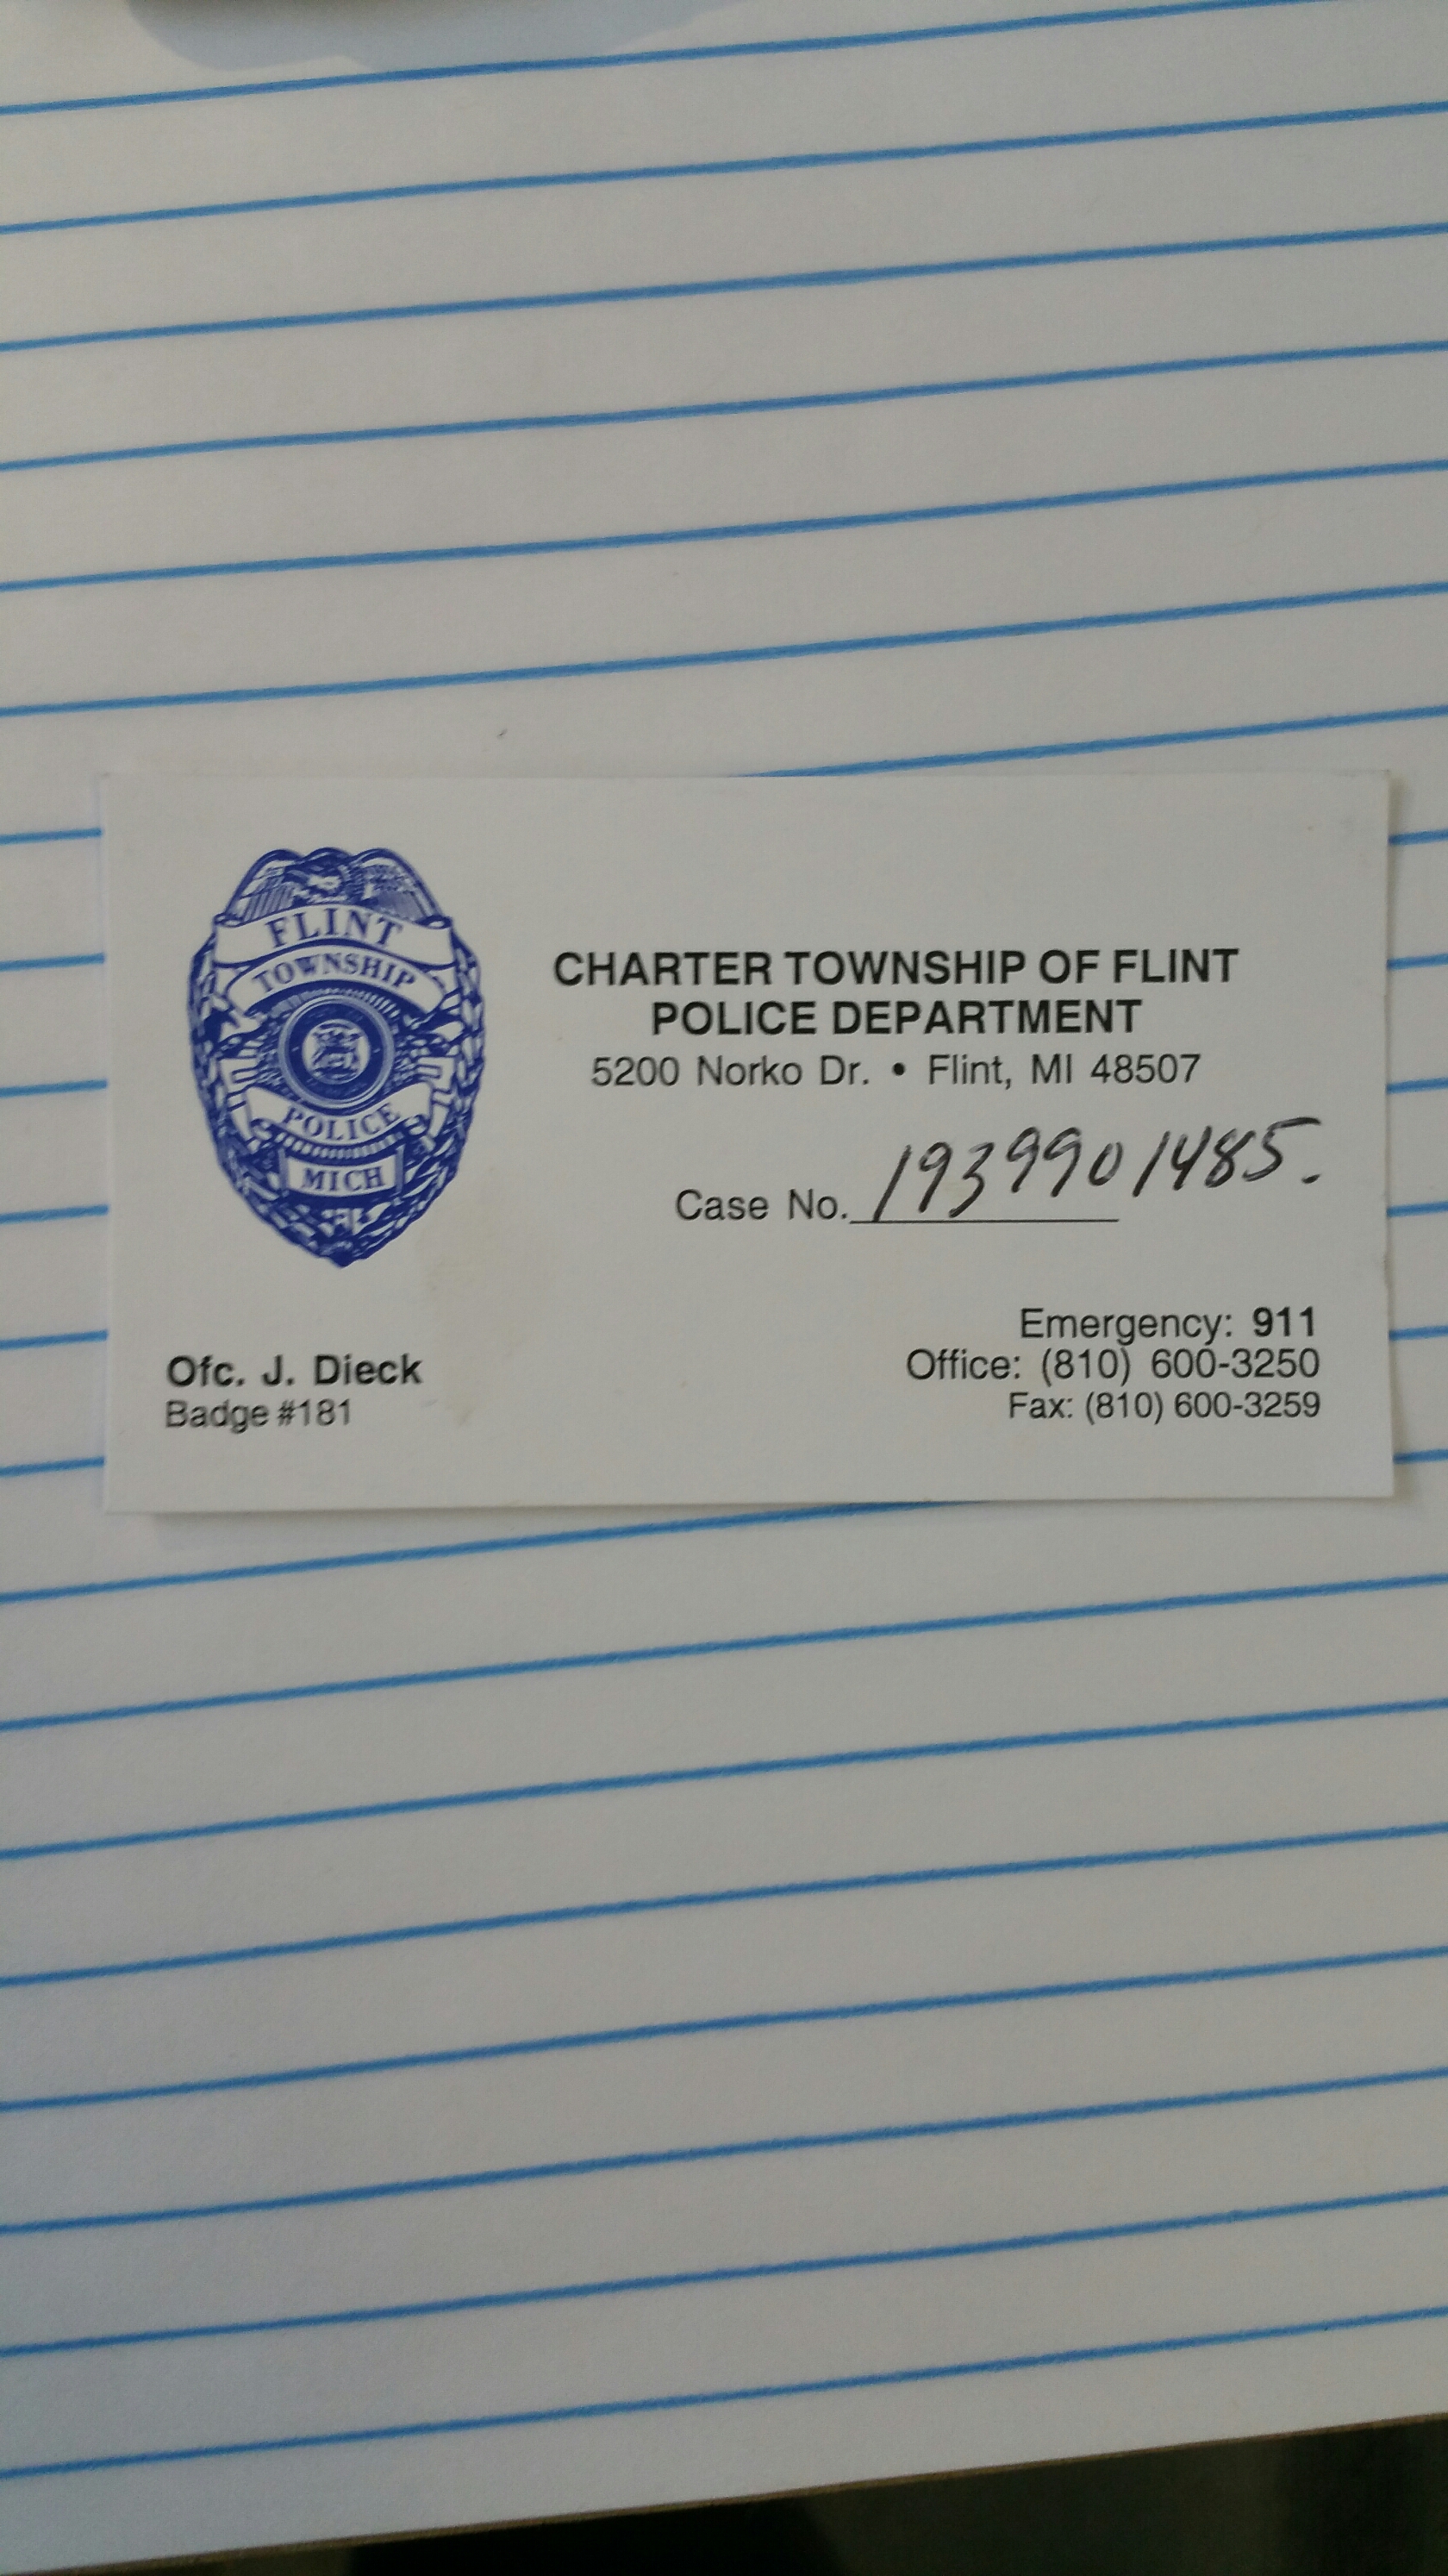 FLINT
TOWNSHIP
POLICE
MICH
CHARTER TOWNSHIP OF FLINT
POLICE DEPARTMENT
5200 Norko Dr. • Flint, MI 48507
Case No. 1939901485.
Ofc. J. Dieck
Badge #181
Emergency: 911
Office: (810) 600-3250
Fax: (810) 600-3259